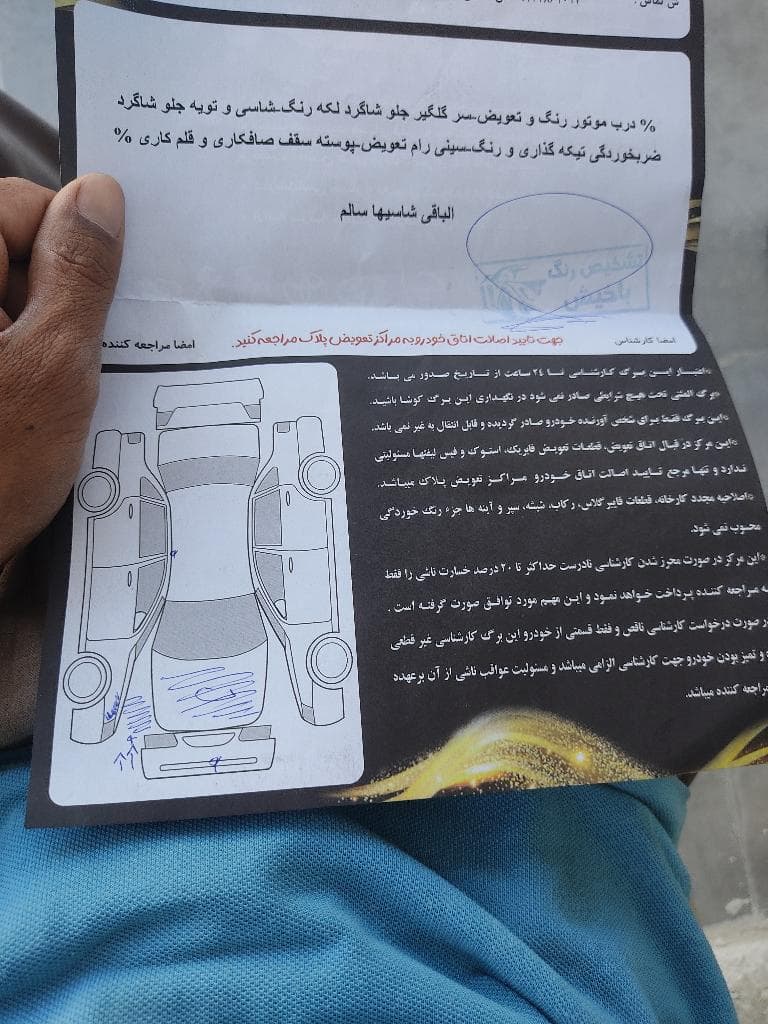 % درب موتور رنگ و تعویض-سر گلگیر جلو شاگرد لکه رنگ-شاسی و تویه جلو شاگرد
ضربخوردگی تیکه گذاری و رنگ-سینی رام تعویض-پوسته سقف صافکاری و قلم کاری %
الباقی شاسیها سالم
تشخیص رنگ
امضا کارشناسی
جهت تایید اصالت اتاق خودرو به مراکز تعویض پلاک مراجعه کنید.
امضا مراجعه کننده
*اعتبار این برگ کارشناسی تا ۲۴ ساعت از تاریخ صدور می باشد.
*برگ المثنی تحت هیچ شرایطی صادر نمی شود در نگهداری این برگ کوشا باشید.
*این برگ فقط برای شخص آورنده خودرو صادر گردیده و قابل انتقال به غیر نمی باشد.
*این مرکز در قبال اتاق تعویض، قطعات تعویض فابریک، استوک و فیس لیفتها مسئولیتی
ندارد و تنها مرجع تایید اصالت اتاق خودرو مراکز تعویض پلاک میباشد.
*اصلاحیه مجدد کارخانه، قطعات فایبرگلاس، رکاب، شیشه، سپر و آینه ها جزء رنگ خوردگی
محسوب نمی شود.
*این مرکز در صورت محرز شدن کارشناسی نادرست حداکثر تا ۲۰ درصد خسارت ناشی را فقط
به مراجعه کننده پرداخت خواهد نمود و این مهم مورد توافق صورت گرفته است.
در صورت درخواست کارشناسی ناقص و فقط قسمتی از خودرو این برگ کارشناسی غیر قطعی
و تمیز بودن خودرو جهت کارشناسی الزامی میباشد و مسئولیت عواقب ناشی از آن برعهده
مراجعه کننده میباشد.